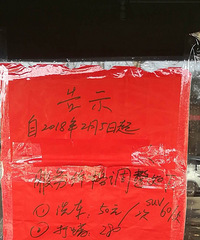 告示
自2018年2月5日起
服务价格调整为
①洗车,50元/次 SUV 60元/次
②打蜡